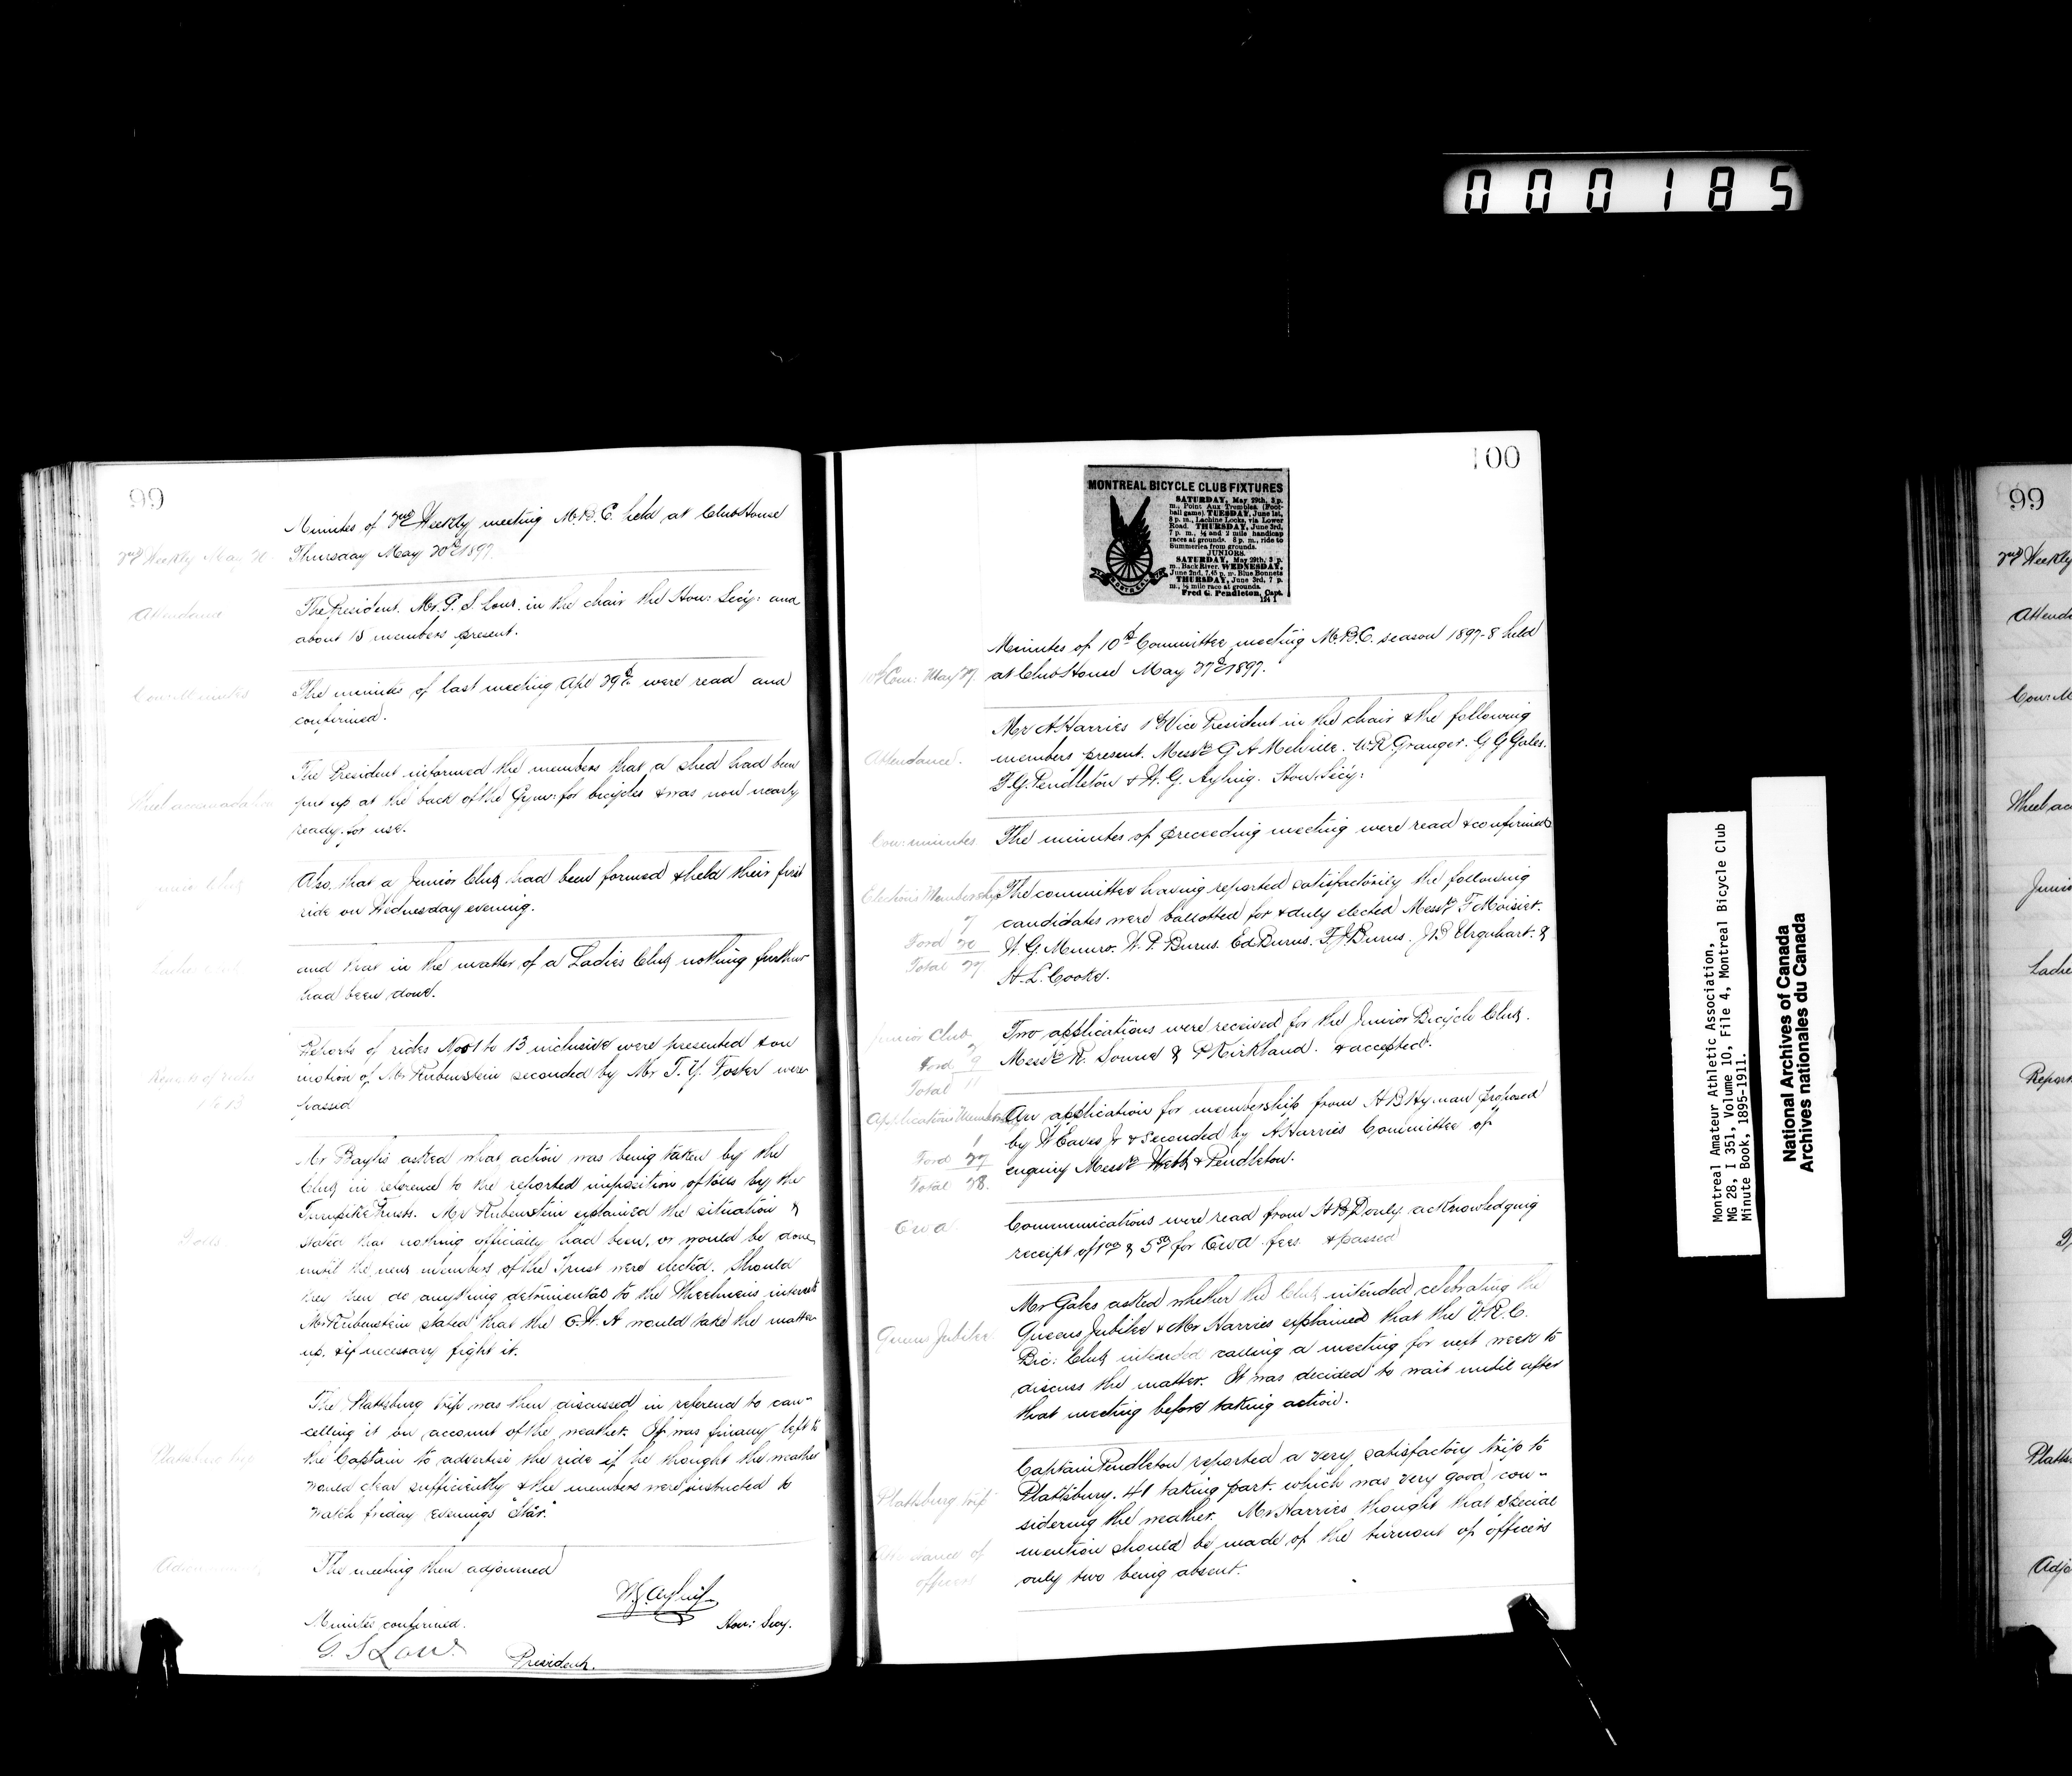 000185
99
Minutes of 2nd Weekly meeting M.B.C. held at Club House
2nd Weekly May 20
Thursday May 20th 1897.
Attendance
The President. Mr. G. S. Low. in the chair the Hon: Secy: and
about 15 members present.
Con: Minutes
The minutes of last meeting Apl 29th were read and
confirmed.
The President informed the members that a shed had been
Wheel accomodation
put up at the back of the Gym: for bicycles & was now nearly
ready for use.
Junior Club
Also, that a Junior Club had been formed & held their first
ride on Wednesday evening.
Ladies Club
and that in the matter of a Ladies Club nothing further
had been done.
Reports of rides Nos 1 to 13 inclusive were presented & on
Reports of rides
motion of Mr Rubenstein seconded by Mr T. Y. Foster were
1 to 13
passed
Mr Baylis asked what action was being taken by the
Club in reference to the reported imposition of tolls by the
Turnpike Trusts. Mr Rubenstein explained the situation &
Tolls
stated that nothing officially had been, or would be done,
until the new members of the Trust were elected. Should
they then do anything detrimental to the Wheelmens interests
Mr Rubenstein stated that the C.W.A would take the matter
up, & if necessary fight it.
The Plattsburg trip was then discussed in reference to can-
celling it on account of the weather. It was finally left to
Plattsburg trip
the Captain to advertise the ride if he thought the weather
would clear sufficiently & the members were instructed to
watch friday evenings "Star".
The meeting then adjourned
W.G. Ayling
Hon: Secy.
Minutes confirmed.
G. S Low.
President.
100
MONTREAL BICYCLE CLUB FIXTURES
SATURDAY, May 29th, 3 p.
m., Point Aux Trembles. (Foot-
ball game). TUESDAY, June 1st,
8 p. m., Lachine Locks, via Lower
Road. THURSDAY, June 3rd,
7 p. m., ½ and 2 mile handicap
races at grounds. 8 p. m., ride to
Summerlea from grounds.
JUNIORS.
SATURDAY, May 29th, 3 p.
m., Back River. WEDNESDAY,
June 2nd, 7.45 p. m. Blue Bonnets
THURSDAY, June 3rd, 7 p.
m., ½ mile race at grounds.
Fred G. Pendleton, Capt.
124 1
MONTREAL
Minutes of 10th Committee meeting M.B.C. season 1897-8 held
10th Com: May 27.
at Club House May 27th 1897.
Mr A Harries 1st Vice President in the chair & the following
Attendance.
members present. Messrs G A Melville. W.R. Granger. G G Gales.
F. G. Pendleton & W. G. Ayling. Hon. Secy:
Con: minutes.
The minutes of preceeding meeting were read & confirmed
Elections Membership
The committee having reported satisfactorily the following
7
candidates were ballotted for & duly elected Messrs F Moisier.
Ford 20
W. G. Munro. W. P. Burns. Ed Burns. F. J Burns. J B Urquhart. &
Total 27
H. L. Cooke.
Junior Club
Two applications were received for the Junior Bicycle Club.
2
Ford 9
Messrs R. Sound & P Kirkland. & accepted.
Total 11
Application Members
An application for membership from H B Hyman proposed
1
by W Eaves Jr & seconded by A Harries Committee of
Ford 27
enquiry Messrs Webb & Pendleton.
Total 28.
Communications were read from H B Donly acknowledging
C W A.
receipt of 1.00 & 5.50 for CWA fees. & passed
Mr Gales asked whether the Club intended celebrating the
Queens Jubilee.
Queens Jubilee & Mr Harries explained that the V.R.C.
Bic: Club intended calling a meeting for next week to
discuss the matter. It was decided to wait until after
that meeting before taking action.
Captain Pendleton reported a very satisfactory trip to
Plattsburg trip
Plattsburg. 41 taking part. which was very good con-
sidering the weather. Mr Harries thought that special
Attendance of
mention should be made of the turnout of officers
officers
only two being absent.
Montreal Amateur Athletic Association,
MG 28, I 351, Volume 10, File 4, Montreal Bicycle Club
Minute Book, 1895-1911.
National Archives of Canada
Archives nationales du Canada
99
2nd Weekly
Attend
Con: M
Wheel ac
Junio
Ladie
Report
Platts
Adjo